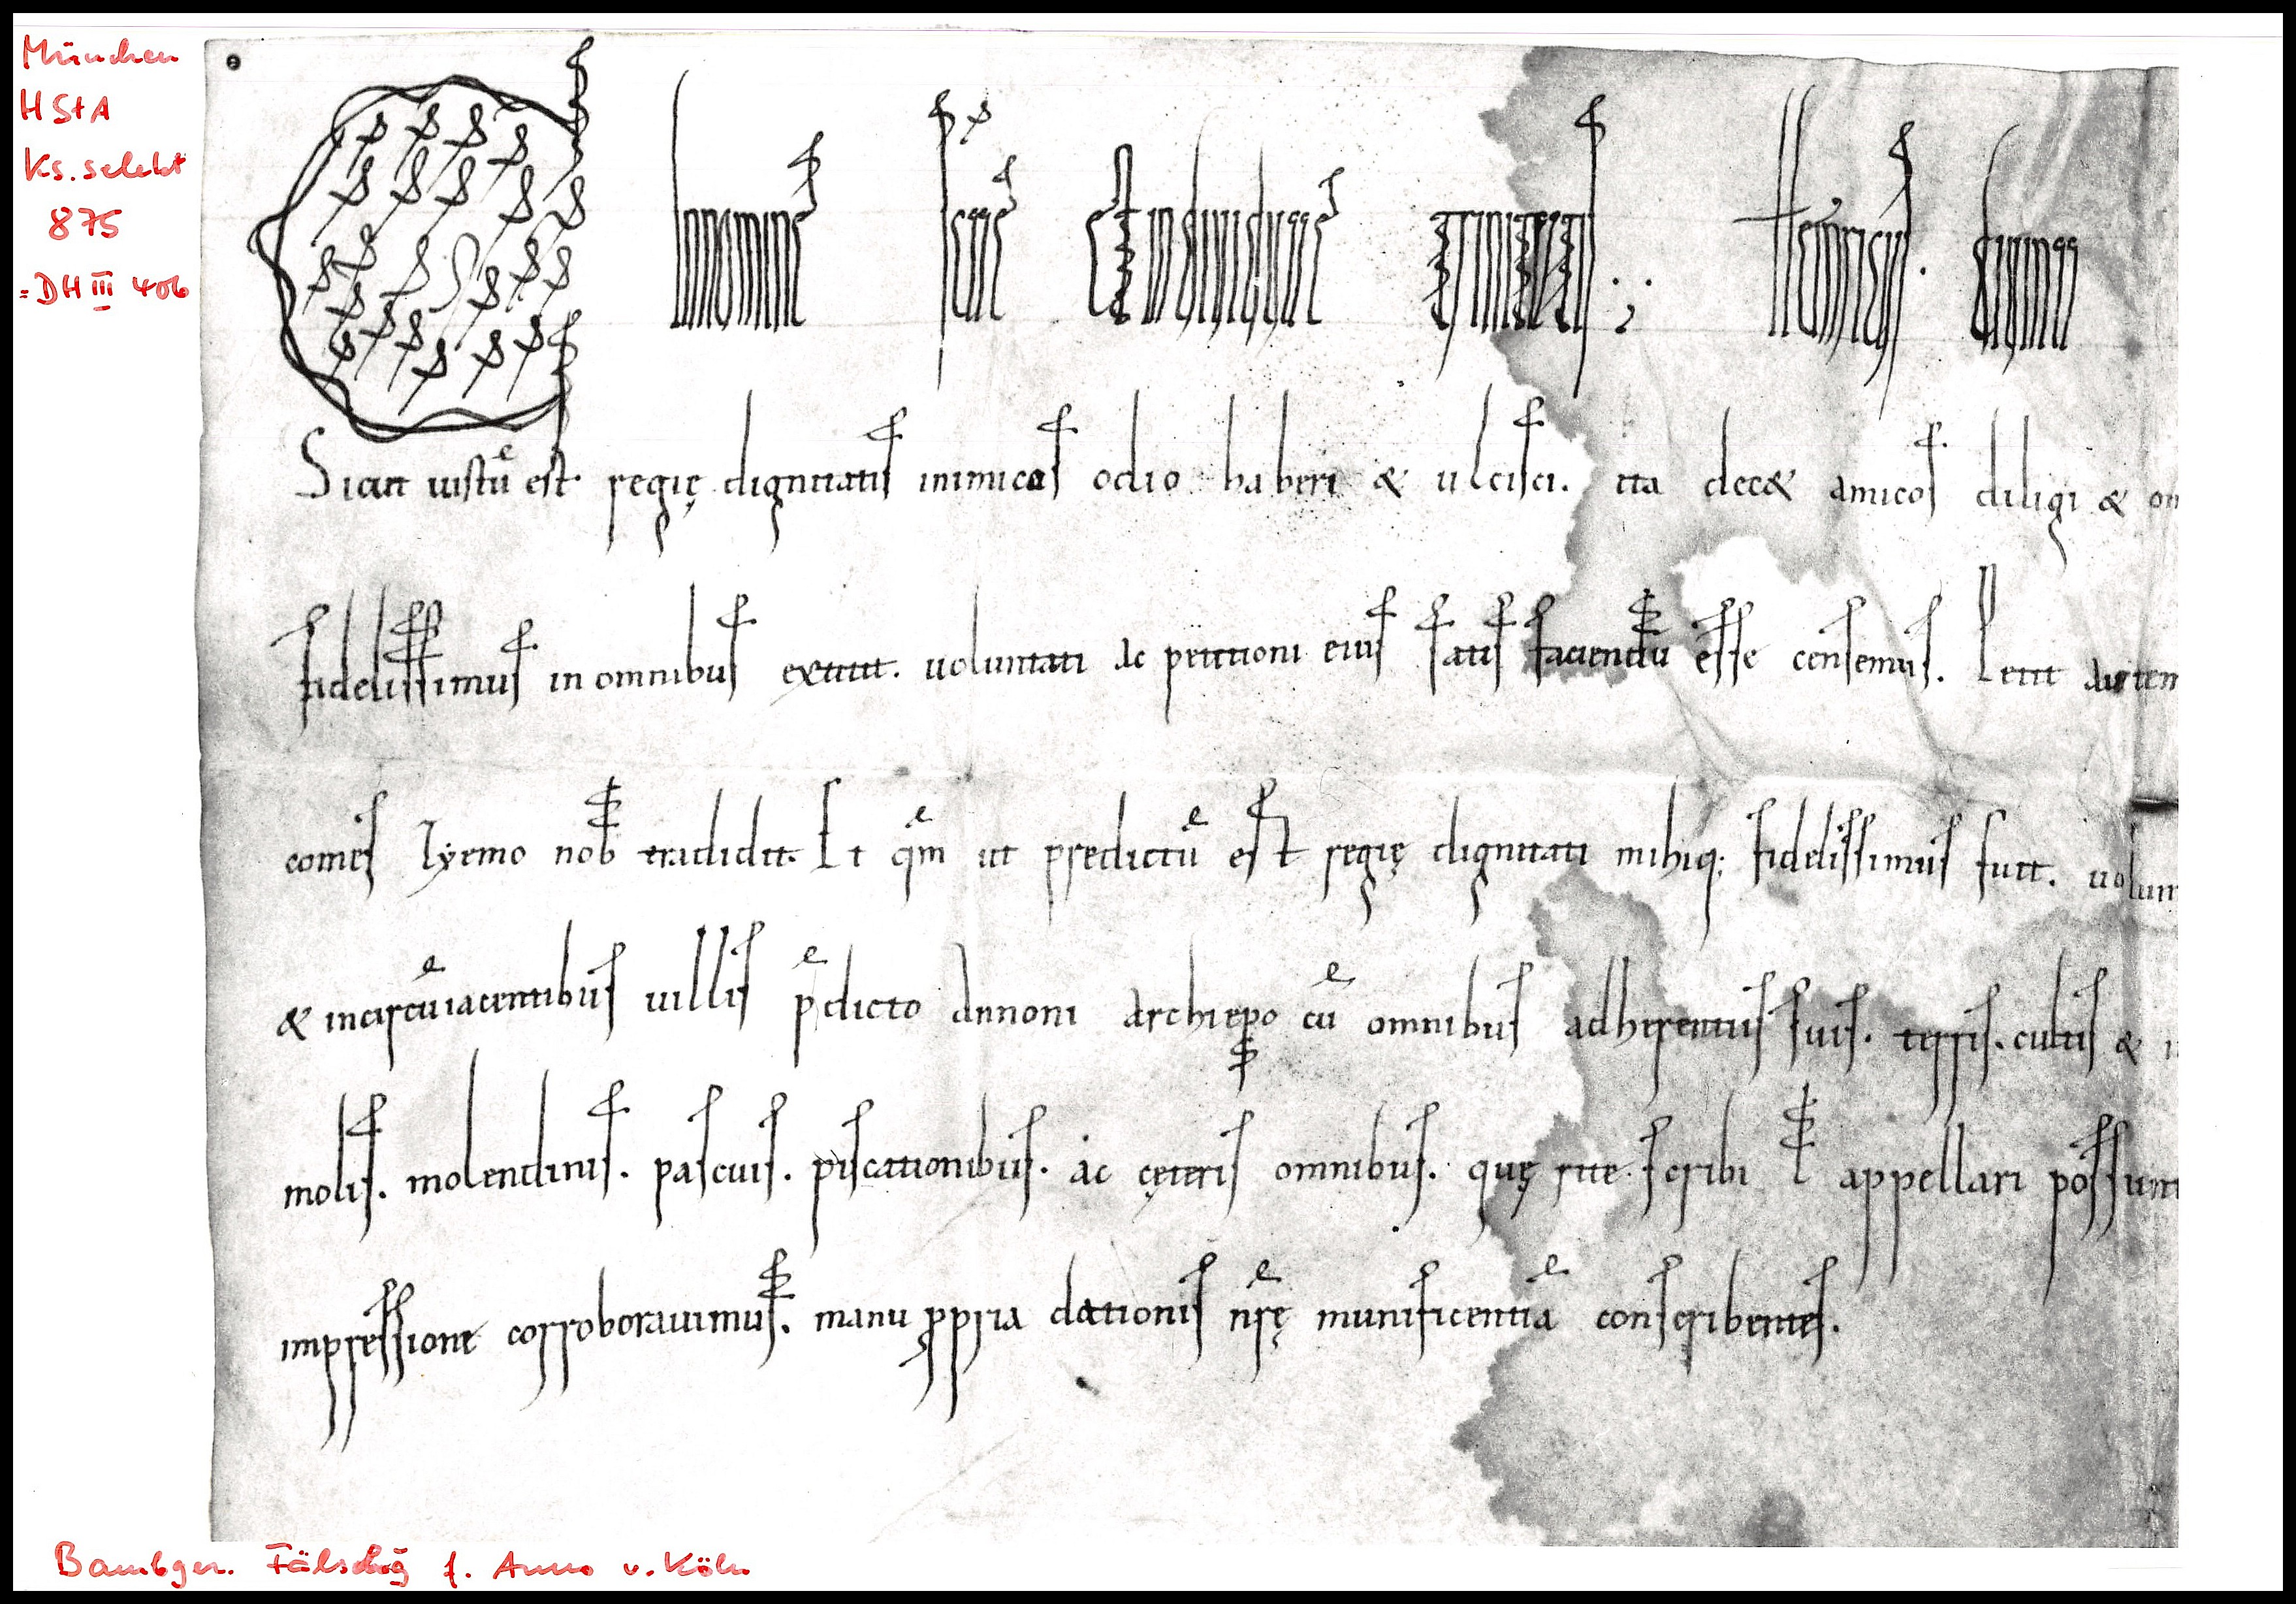 München
HStA
Ks. selekt
875
= DH III 406
In nomine scae & indiuiduae trinitatis Heinricus diuina
Sicut iustū est regię dignitatis inimicos odio haberi & ulcisci. ita dec& amicos diligi & om
fidelissimus in omnibus extitit. voluntati ac petitioni eius satis faciendū esse censemus. Petit autem
comes Iyemo nob tradidit. Et qm̄ ut predictū est regię dignitati mihiq; fidelissimus fuit. volun
& in circūiacentibus uillis p̄dicto Annoni archiepo cū omnibus adherentiis suis. terris. cultis & in
molis. molendinis. pascuis. piscationibus. ac cęteris omnibus. quę rite scribi ł appellari possunt
impressione corroborauimus. manu ppria dationis nrę munificentiā conscribentes.
Bambger. Fälschg f. Anno v. Köln